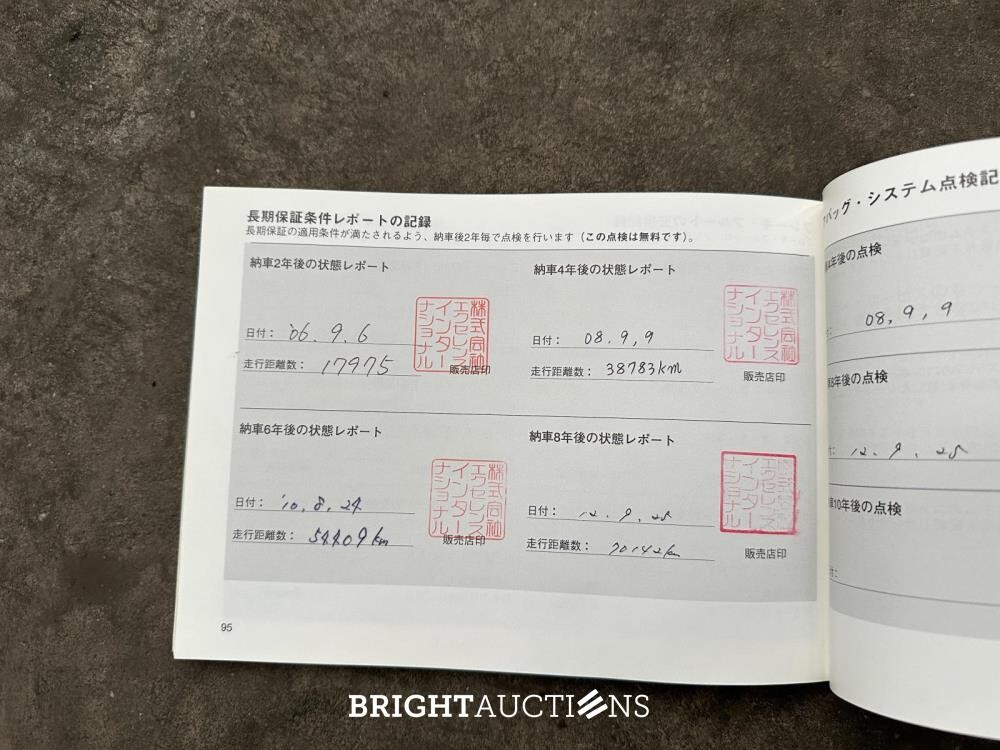 長期保証条件レポートの記録
長期保証の適用条件が満たされるよう、納車後2年毎で点検を行います（この点検は無料です）。
納車2年後の状態レポート
日付： '06. 9. 6
走行距離数： 17975
株式会社
エクセレンス
インター
ナショナル
販売店印
納車4年後の状態レポート
日付： 08. 9, 9
走行距離数： 38783km
株式会社
エクセレンス
インター
ナショナル
販売店印
納車6年後の状態レポート
日付： '10. 8. 24
走行距離数： 54409km
株式会社
エクセレンス
インター
ナショナル
販売店印
納車8年後の状態レポート
日付： 12. 9. 25
走行距離数： 70142km
株式会社
エクセレンス
インター
ナショナル
販売店印
95
バッグ・システム点検記
4年後の点検
08, 9, 9
8年後の点検
12. 9. 25
10年後の点検
BRIGHTAUCTIONS